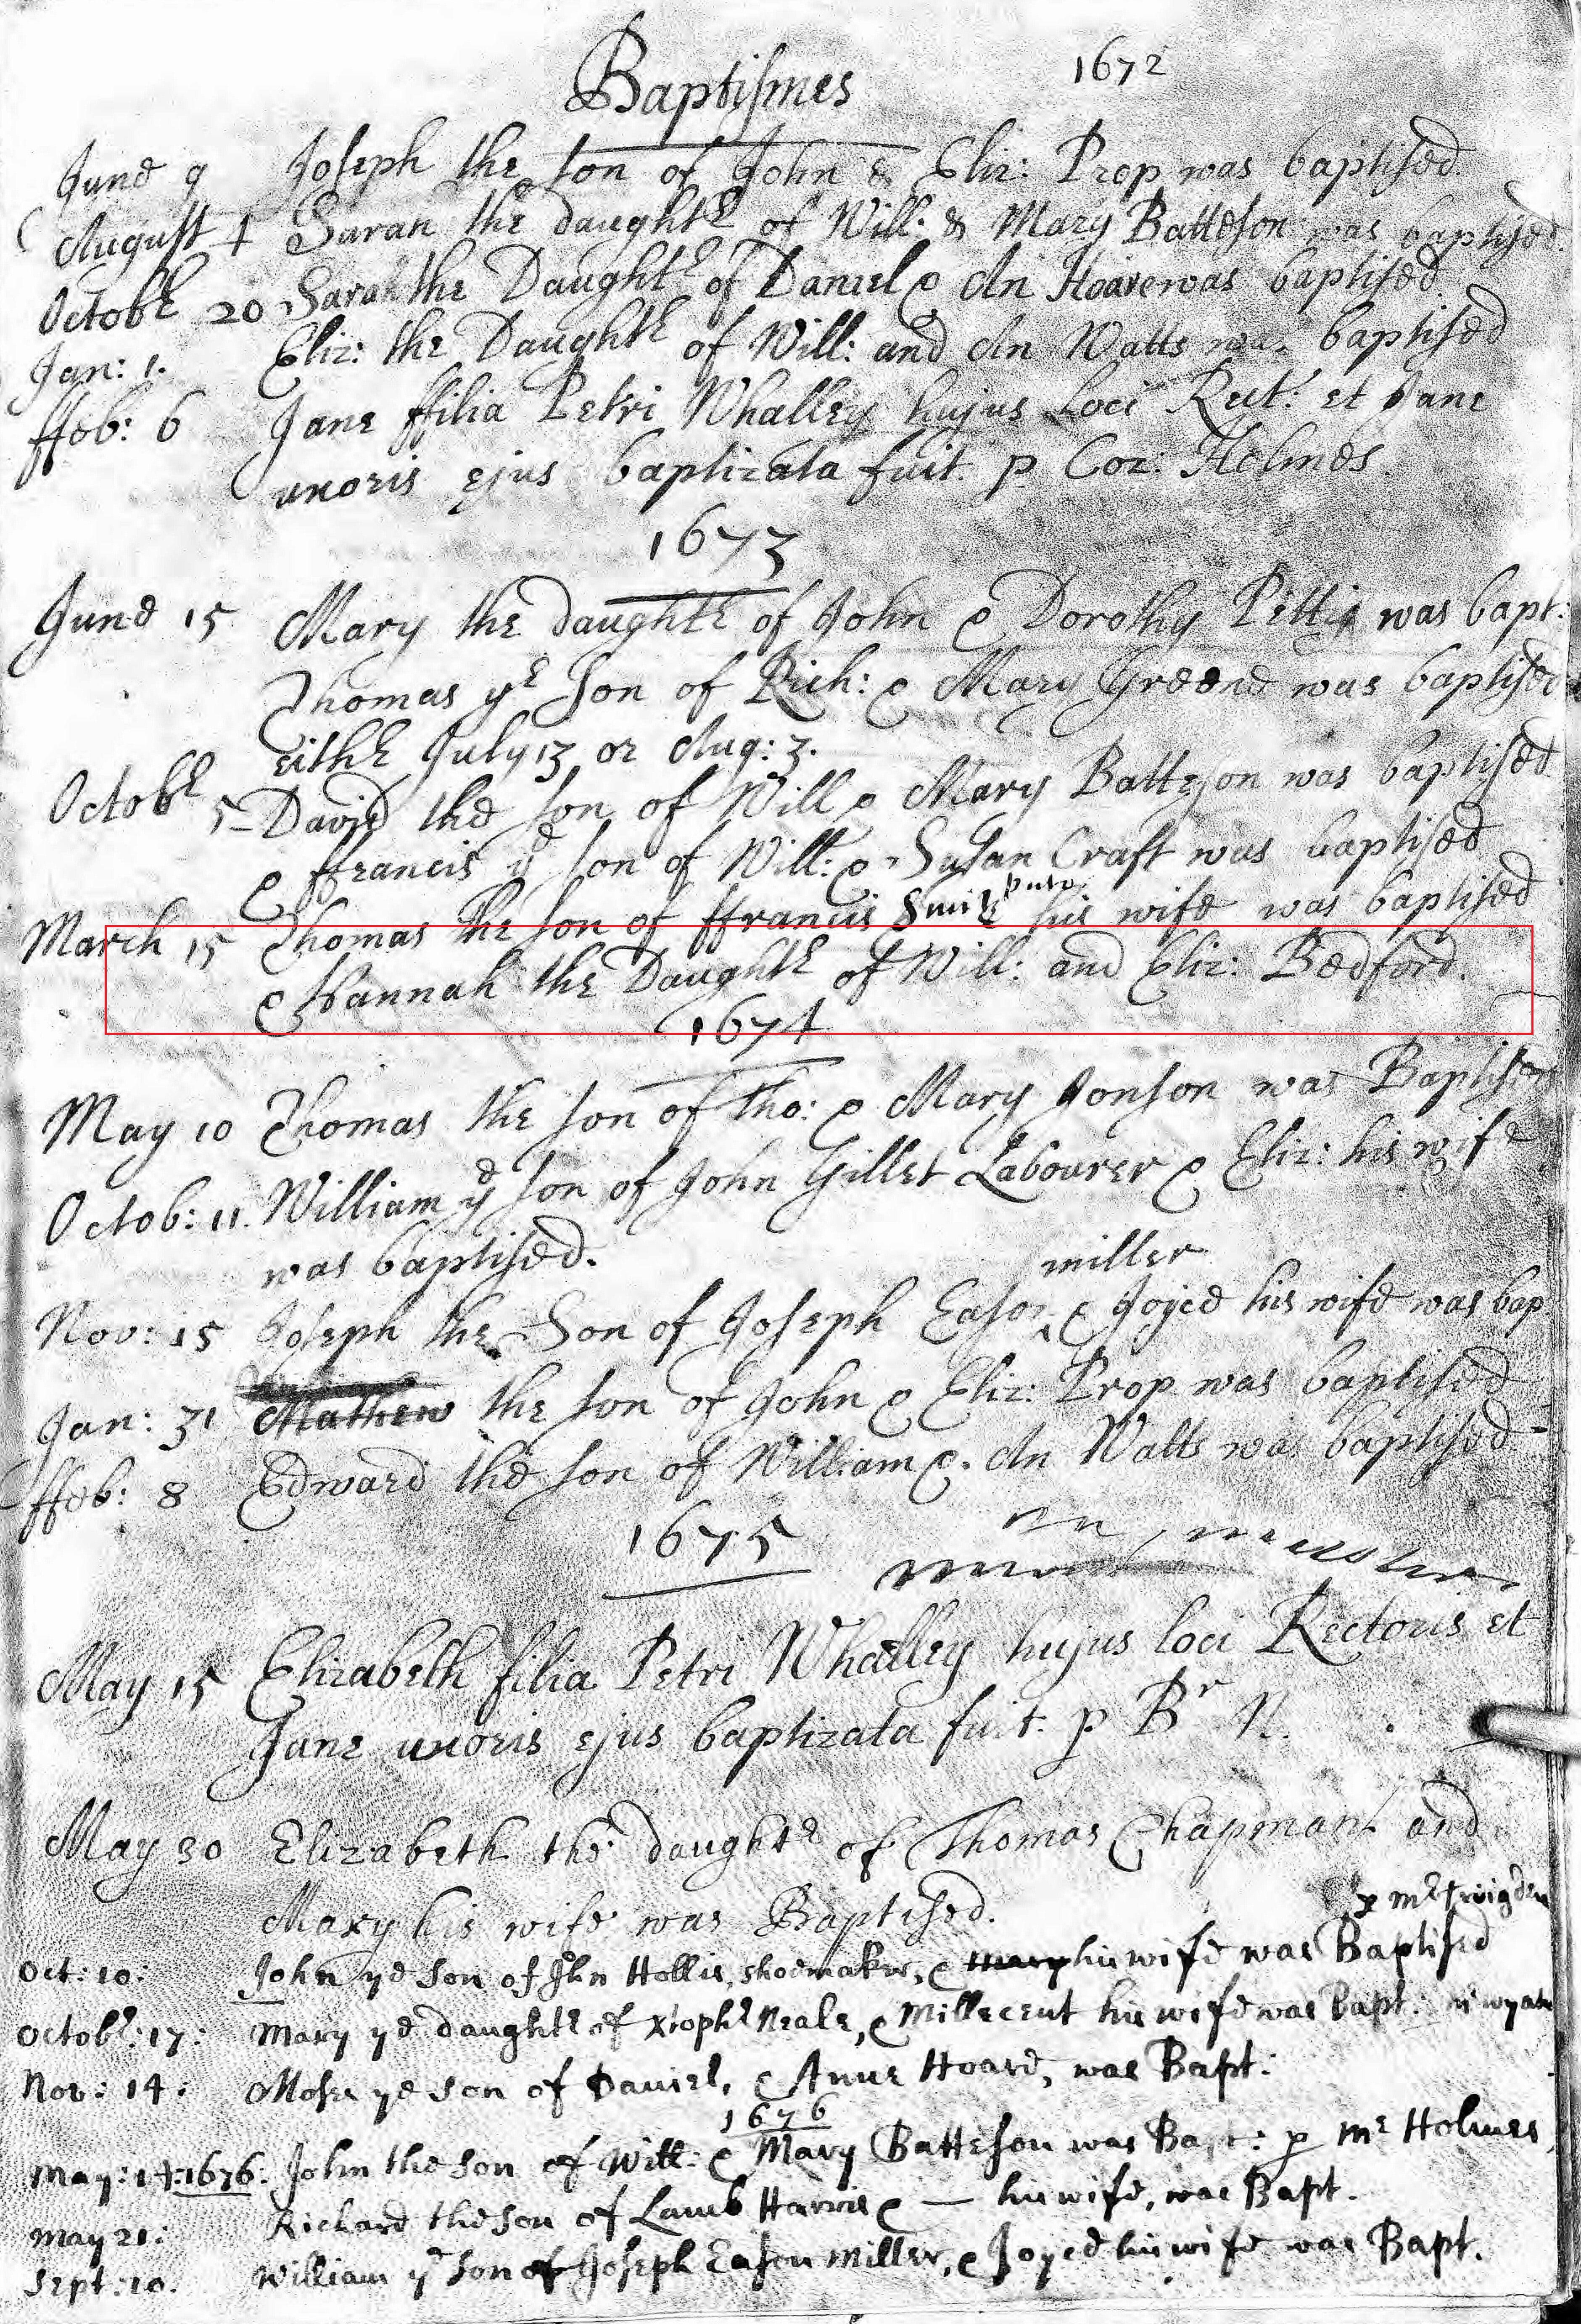 Baptismes 1672
June 9 Joseph the son of John & Eliz: Prop was baptised
August 4 Sarah the daughte of Will: & Mary Batteson was baptised
Octobr 20 Sarah the Daughtr of Daniel & An Hoare was baptised
Jan: 1. Eliz: the Daughtr of Will: and An Watts was baptised
ffeb: 6 Jane ffilia Petri Whalley hujus Loci Rect: et Jane
uxoris ejus baptizata fuit. p Cor: Holmes.
1673
June 15 Mary the daughtr of John & Dorothy Pettis was bapt:
Thomas ye son of Rich: & Mary Greene was baptised
eithr July 13 or Aug: 3.
Octobr 5 David the son of Will & Mary Batteson was baptised
& ffrancis ye son of Will: & Susan Craft was baptised
March 15 Thomas the son of ffrancis Smith his wife was baptised
& Hannah the Daughtr of Will: and Eliz: Bedford.
1674
May 10 Thomas the son of Tho: & Mary Jonson was Baptised
Octob: 11. William ye son of John Gillet Labourer & Eliz: his wife
was baptised.
miller
Nov: 15 Joseph the Son of Joseph Eason & Joyce his wife was bap
Jan: 31 Mathew the son of John & Eliz: Prop was baptised
ffeb: 8 Edward the son of William & An Watts was baptised
1675
May 15 Elizabeth filia Petri Whalley hujus loci Rectoris et
Jane uxoris ejus baptizata fuit. p Br N.
May 30 Elizabeth the daughtr of Thomas Chapman and
Mary his wife was Baptised.
p mr Twigden
Oct: 10: John ye son of Jhn Hollis, shoemaker, & Mary his wife was Baptised
Octobr: 17: Mary ye daughtr of Xtophr Neale, & Millecent his wife was Bapt:
Nov: 14: Moses ye son of Daniel, & Anne Hoard, was Bapt:
1676
May: 14: 1676. John the son of Will: & Mary Batteson was Bapt: p Mr Holmes
May 21: Richard the son of Lamb Harris & — his wife, was Bapt.
Sept: 10. William ye son of Joseph Eason Miller, & Joyce his wife was Bapt.